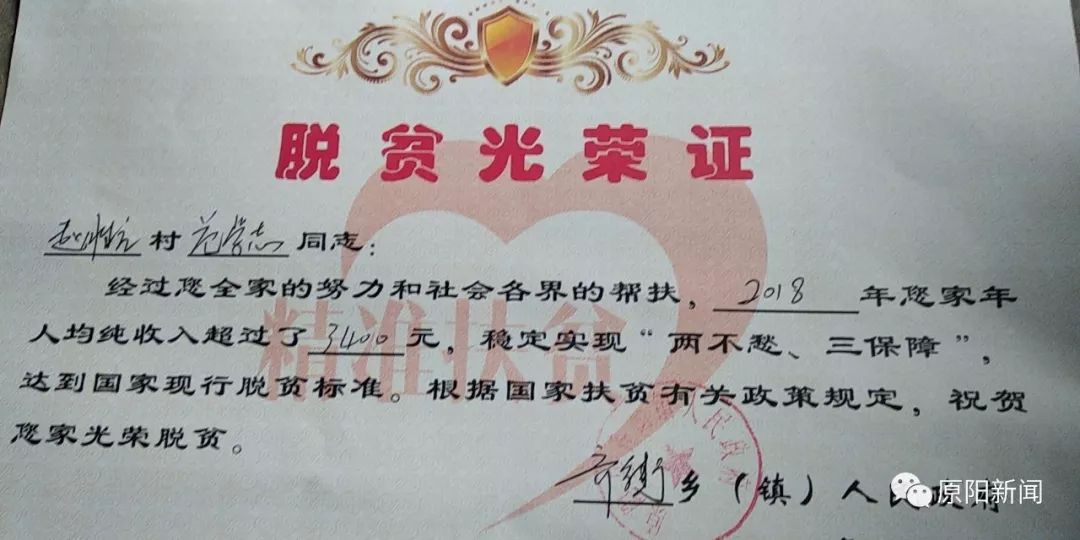 脱贫光荣证
村范学志同志：
经过您全家的努力和社会各界的帮扶，2018年您家年
人均纯收入超过了3400元，稳定实现“两不愁、三保障”，
达到国家现行脱贫标准。根据国家扶贫有关政策规定，祝贺
您家光荣脱贫。
精准扶贫
齐街乡（镇）人民政府
人民政府
原阳新闻